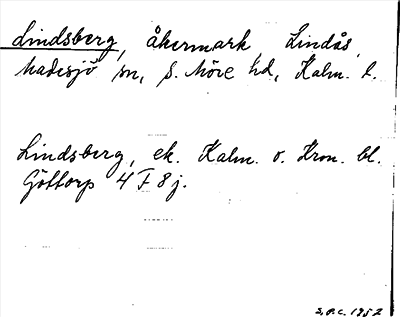 Lindsberg, åkermark, Lindås,
Madesjö sn, S. Möre hd, Kalm. l.
Lindsberg, ek. Kalm. o. Kron. bl.
Göttorp 4 F 8 j.
S.P.C. 1952